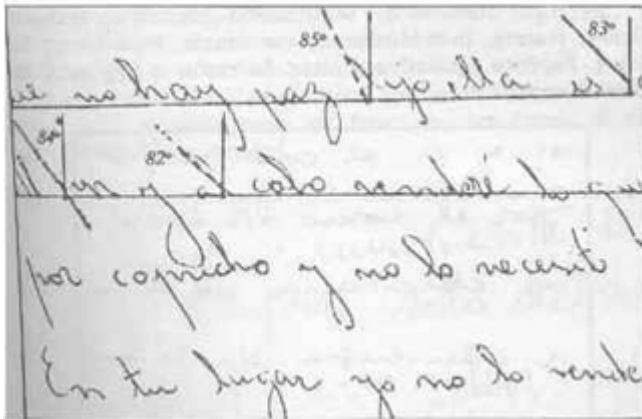 85° 83°
no hay paz y ella es
84° 82°
y al cabo venderé lo que
por capricho y no lo necesit
En tu lugar yo no lo vende